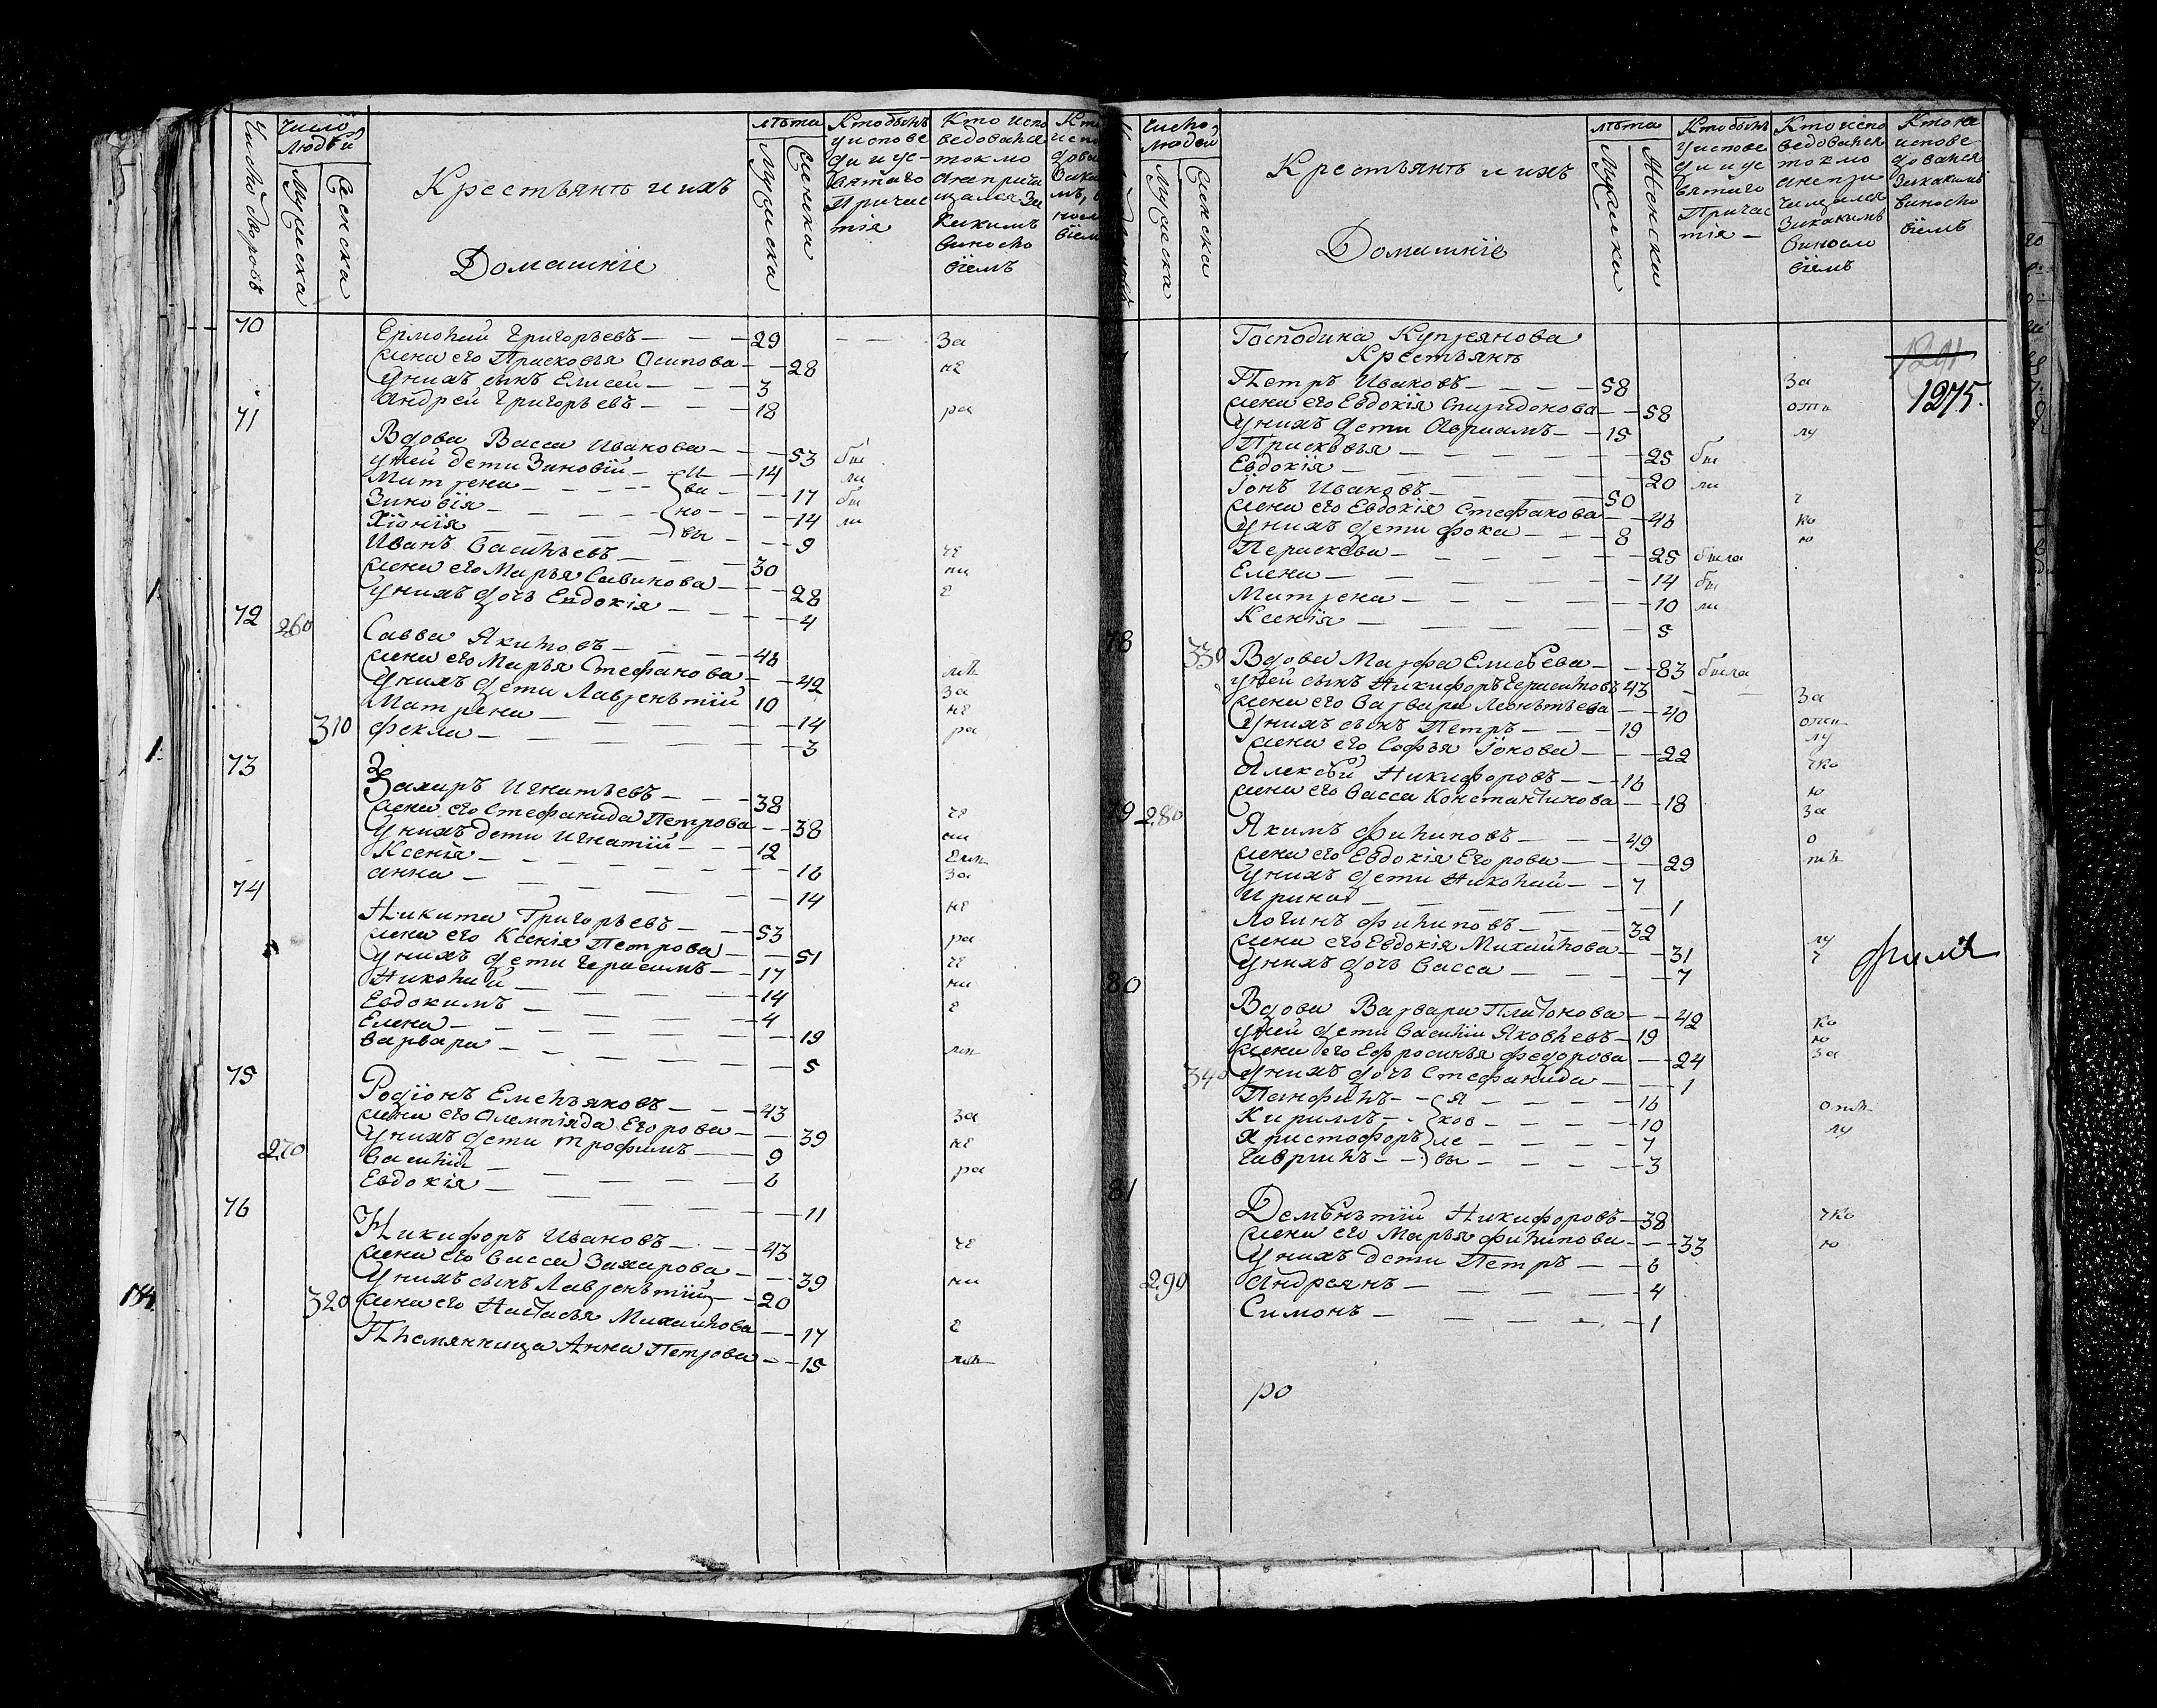 Число дворовъ
Число людей
Мужеска
Женска
Крестьянъ и ихъ
Домашнїе
лѣта
Мужеска
Женска
Кто былъ
у испове
ди и Свя
таго
Причас
тїя
Кто испо
ведовался
токмо
а не прича
щался За
Каким
Винословїемъ
70
Ермолай Григорьевъ 29 За
Жена его Прасковья Осипова 28 не
У нихъ сынъ Елисей 3
Андрей Григорьевъ 18 ра
71
Вдова Васса Иванова 53 бы
у ней дети Зиновїй 14 ли
Матрена 17 бы
Зиновїя 14 ли
Хїонїя 9
Иванъ Васильевъ 30 че
Жена его Марья Савинова 28 ни
У нихъ дочь Евдокїя 4 е
72 260
Савва Якимовъ 46
Жена его Марья Стефанова 42
У нихъ дети Лаврентїй 10 За
Матрена 14 не
310 Фекла 3 ра
73
Захаръ Игнатьевъ 38
Жена его Стефанида Петрова 38 че
У нихъ дети Игнатїй 12 ни
Ксенїя 16
Анна 14 За
74
Никита Григорьевъ 53 не
Жена его Ксенїя Петрова 51 ра
У нихъ дети Герасимъ 17 че
Николай 14 ни
Евдокимъ 4 е
Елена 19
Варвара 5
75
Родїонъ Емельяновъ 43
Жена его Олемпїяда Егорова 39 За
У нихъ дети Трофимъ 9 не
270 Василїй 6 ра
Евдокїя 11
76
Никифоръ Ивановъ 43 че
Жена его Васса Захарова 39 ни
У нихъ сынъ Лаврентїй 20
320 Жена его Настасья Михайлова 17 е
Племянница Анна Петрова 15
Число людей
Мужеска
Женска
Крестьянъ и ихъ
Домашнїе
лѣта
Мужска
Женска
Кто былъ
у испове
ди и Свя
таго
Причас
тїя
Кто испо
ведовался
токмо
а не при
чащался
За каким
Винословїемъ
Кто не
испове
довался
За каким
Виносло
вїемъ
Господина Купреянова
Крестьянъ
1291
1275.
Петръ Ивановъ 58 За
Жена его Евдокїя Спиридонова 58 отл
У нихъ дети Авраамъ 15 лу
Прасковья 25 бы
Евдокїя 20 ли
Іонъ Ивановъ 50 ч
Жена его Евдокїя Стефанова 46 ко
У нихъ дети Фока 8 ю
Перасковья 25 была
Елена 14 бы
Матрена 10 ли
Ксенїя 5
78
330 Вдова Марфа Елисеева 83 была
у ней сынъ Никифоръ Герасимовъ 43
Жена его Варвара Леонтьева 40 За
У нихъ сынъ Петръ 19 отл
Жена его Софья Іонова 22 лу
Алексѣй Никифоровъ 16 чко
Жена его Васса Константинова 18 ю
79 280
Якимъ Филиповъ 49 о
Жена его Евдокїя Егорова 29
У нихъ дети Николай 7
Ирина 1
Логинъ Филиповъ 32 лу
Жена его Евдокїя Михайлова 31 ч
У нихъ дочь Васса 7
80
Вдова Варвара Платонова 42 ко
у ней дети Василїй Яковлевъ 19 ю
Жена его Ефросинья Федорова 24 За
340 У нихъ дочь Стефанида 1
Панфилъ 16 отл
Кириллъ 10 лу
Христофоръ 7
Гаврилъ 3
81
Дементїй Никифоровъ 38 чко
Жена его Марья Филипова 33 ю
У нихъ дети Петръ 6
290 Андреянъ 4
Симонъ 1
ро